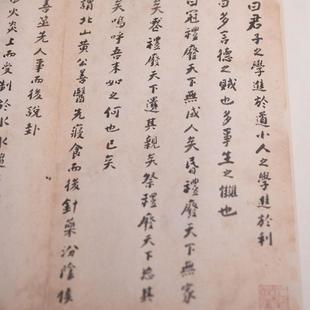 曰君子之學進於道小人之學進於利
曰多言德之賊也多事生之讎也
曰冠禮廢天下無成人矣昏禮廢天下無家
矣喪禮廢天下遺其親矣祭禮廢天下忘其
矣嗚呼吾末如之何也已矣
謂北山黃公善醫先寢食而後針藥汾陰侯
善筮先人事而後說卦
火炎上而受制於水水